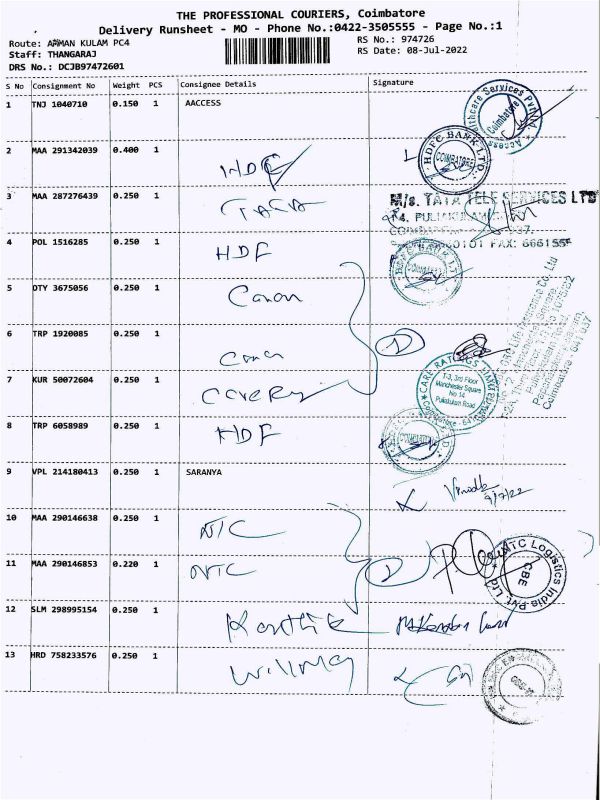 THE PROFESSIONAL COURIERS, Coimbatore
Delivery Runsheet - MO - Phone No.:0422-3505555 - Page No.:1
Route: AMMAN KULAM PC4
RS No.: 974726
Staff: THANGARAJ
RS Date: 08-Jul-2022
DRS No.: DCJB97472601
S No Consignment No Weight PCS Consignee Details Signature
1 TNJ 1040710 0.150 1 AACCESS
2 MAA 291342039 0.400 1 HDF
HDFC BANK LTD. COIMBATORE
3 MAA 287276439 0.250 1 TATA
M/s. TATA TELE SERVICES LTD
4 POL 1516285 0.250 1 HDF
5 DTY 3675056 0.250 1 Canon
6 TRP 1920085 0.250 1
7 KUR 50072604 0.250 1
CARE RATINGS
T-3, 3rd Floor
Manchester Square
No 14
Puliakulam Road
8 TRP 6058989 0.250 1 HDF
9 VPL 214180413 0.250 1 SARANYA
9/7/22
10 MAA 290146638 0.250 1 NTC
11 MAA 290146853 0.220 1 NTC
NTC Logistics India Pvt. Ltd. CBE
12 SLM 298995154 0.250 1 Karthik
13 HRD 758233576 0.250 1